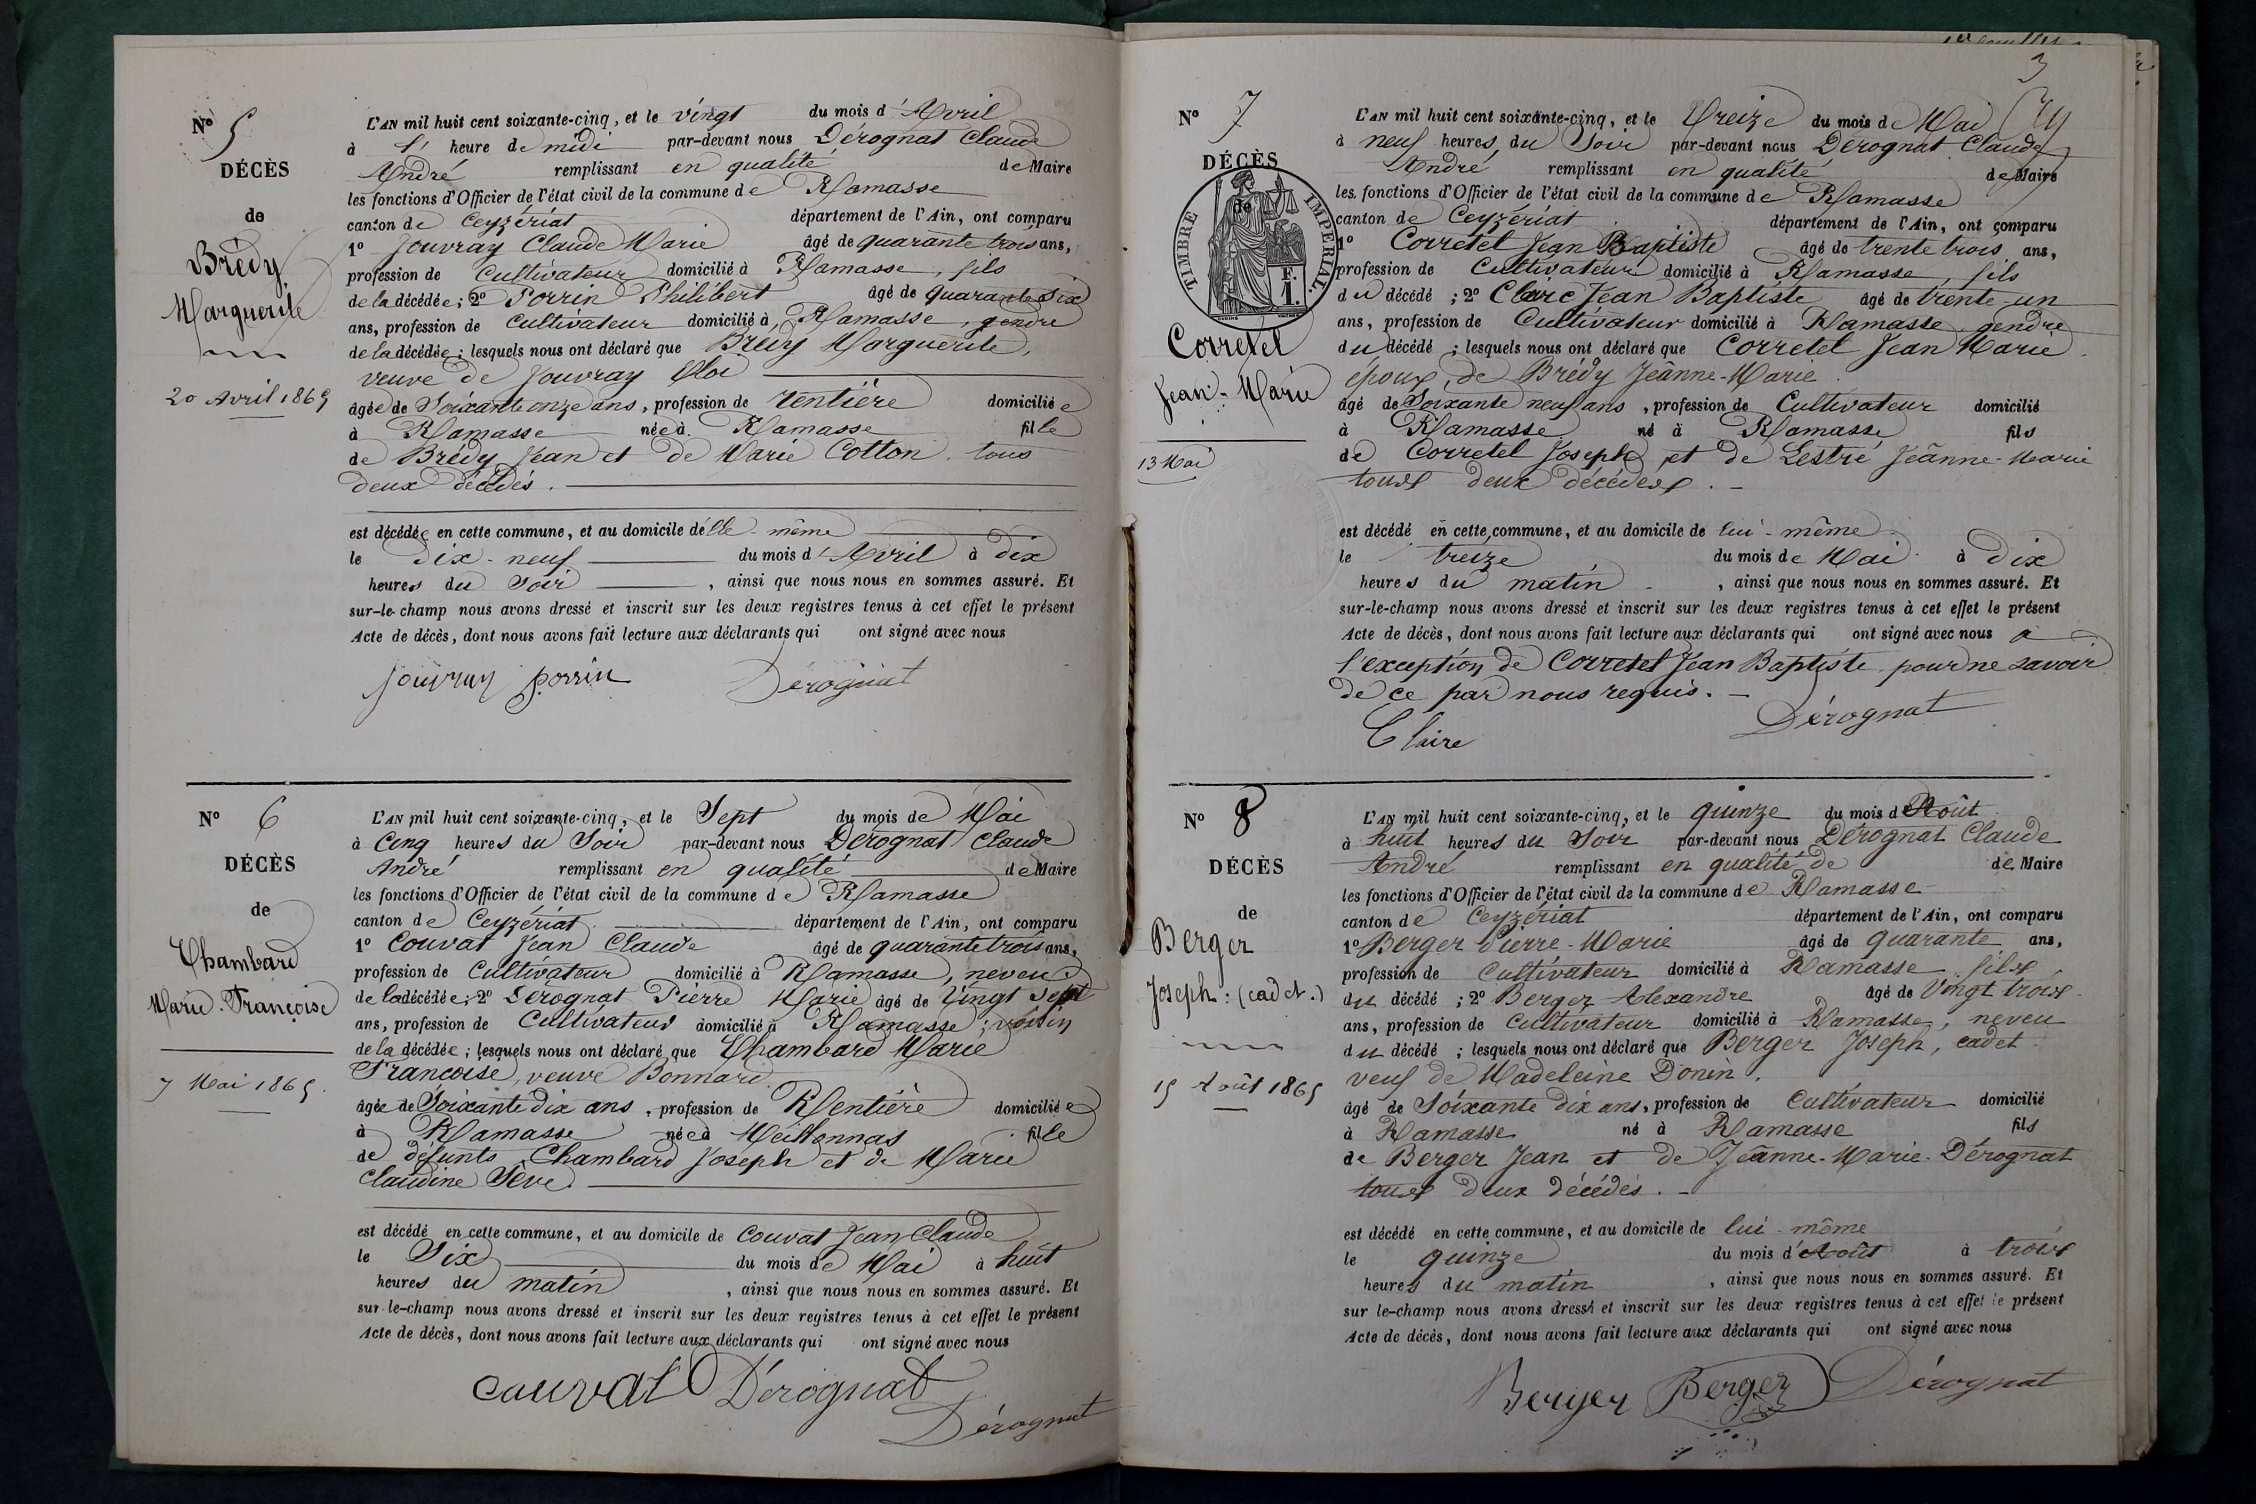 Nº 5
DÉCÈS
de
Brédy
Marguerite
20 Avril 1865
L'AN mil huit cent soixante-cinq, et le vingt du mois d'Avril
à heure de midi par-devant nous Dérognat Claude
André remplissant en qualité de Maire
les fonctions d'Officier de l'état civil de la commune de Ramasse
canton de Ceyzériat département de l'Ain, ont comparu
1º Jouvray Claude Marie âgé de quarante trois ans,
profession de Cultivateur domicilié à Ramasse, fils
de la décédée; 2º Porrin Philibert âgé de quarante six
ans, profession de Cultivateur domicilié à Ramasse, gendre
de la décédée; lesquels nous ont déclaré que Brédy Marguerite,
veuve de Jouvray Eloi
âgée de Soixante onze ans, profession de rentière domiciliée
à Ramasse née à Ramasse fille
de Brédy Jean et de Marie Cotton tous
deux décédés.
est décédée en cette commune, et au domicile d'elle-même
le dix-neuf du mois d'Avril à dix
heures du Soir, ainsi que nous nous en sommes assuré. Et
sur-le-champ nous avons dressé et inscrit sur les deux registres tenus à cet effet le présent
Acte de décès, dont nous avons fait lecture aux déclarants qui ont signé avec nous
Jouvray porrin Dérognat
Nº 6
DÉCÈS
de
Chambard
Marie-Françoise
7 Mai 1865.
L'AN mil huit cent soixante-cinq, et le Sept du mois de Mai
à Cinq heures du Soir par-devant nous Dérognat Claude
André remplissant en qualité de Maire
les fonctions d'Officier de l'état civil de la commune de Ramasse
canton de Ceyzériat département de l'Ain, ont comparu
1º Couvat Jean Claude âgé de quarante trois ans,
profession de Cultivateur domicilié à Ramasse, neveu
de la décédée; 2º Dérognat Pierre Marie âgé de Vingt Sept
ans, profession de Cultivateur domicilié à Ramasse; voisin
de la décédée; lesquels nous ont déclaré que Chambard Marie
Francoise, veuve Bonnard
âgée de Soixante dix ans, profession de Rentière domiciliée
à Ramasse née à Meillonnas fille
de défunts Chambard Joseph et de Marie
Claudine Sève.
est décédé en cette commune, et au domicile de Couvat Jean Claude
le Six du mois de Mai à huit
heures du matin, ainsi que nous nous en sommes assuré. Et
sur-le-champ nous avons dressé et inscrit sur les deux registres tenus à cet effet le présent
Acte de décès, dont nous avons fait lecture aux déclarants qui ont signé avec nous
couvat Dérognat
Dérognat
3
Nº 7
DÉCÈS
de
TIMBRE IMPÉRIAL
F.
1.
Corretel
Jean-Marie
13 Mai
L'AN mil huit cent soixante-cinq, et le treize du mois de Mai
à neuf heures du Soir par-devant nous Dérognat Claude
André remplissant en qualité de Maire
les fonctions d'Officier de l'état civil de la commune de Ramasse
canton de Ceyzériat département de l'Ain, ont comparu
1º Corretel Jean Baptiste âgé de trente trois ans,
profession de Cultivateur domicilié à Ramasse, fils
du décédé; 2º Claire Jean Baptiste âgé de trente-un
ans, profession de Cultivateur domicilié à Ramasse gendre
du décédé; lesquels nous ont déclaré que Corretel Jean Marie
époux de Brédy Jeanne-Marie
âgé de Soixante neuf ans, profession de Cultivateur domicilié
à Ramasse né à Ramasse fils
de Corretel Joseph et de Lestré Jeanne-Marie
tous deux décédés.
est décédé en cette commune, et au domicile de lui-même
le treize du mois de Mai à dix
heures du matin, ainsi que nous nous en sommes assuré. Et
sur-le-champ nous avons dressé et inscrit sur les deux registres tenus à cet effet le présent
Acte de décès, dont nous avons fait lecture aux déclarants qui ont signé avec nous a
l'exception de Corretel Jean Baptiste pour ne savoir
de ce par nous requis.
Claire Dérognat
Nº 8
DÉCÈS
de
Berger
Joseph: (cadet.)
15 Août 1865
L'AN mil huit cent soixante-cinq, et le quinze du mois d'Août
à huit heures du Soir par-devant nous Dérognat Claude
André remplissant en qualité de de Maire
les fonctions d'Officier de l'état civil de la commune de Ramasse
canton de Ceyzériat département de l'Ain, ont comparu
1º Berger Pierre-Marie âgé de quarante ans,
profession de Cultivateur domicilié à Ramasse fils
du décédé; 2º Berger Alexandre âgé de Vingt trois
ans, profession de Cultivateur domicilié à Ramasse, neveu
du décédé; lesquels nous ont déclaré que Berger Joseph, cadet
veuf de Madeleine Donin.
âgé de Soixante dix ans, profession de Cultivateur domicilié
à Ramasse né à Ramasse fils
de Berger Jean et de Jeanne-Marie Dérognat
tous deux décédés.
est décédé en cette commune, et au domicile de lui-même
le quinze du mois d'Août à trois
heures du matin, ainsi que nous nous en sommes assuré. Et
sur le-champ nous avons dressé et inscrit sur les deux registres tenus à cet effet le présent
Acte de décès, dont nous avons fait lecture aux déclarants qui ont signé avec nous
Berger Berger Dérognat